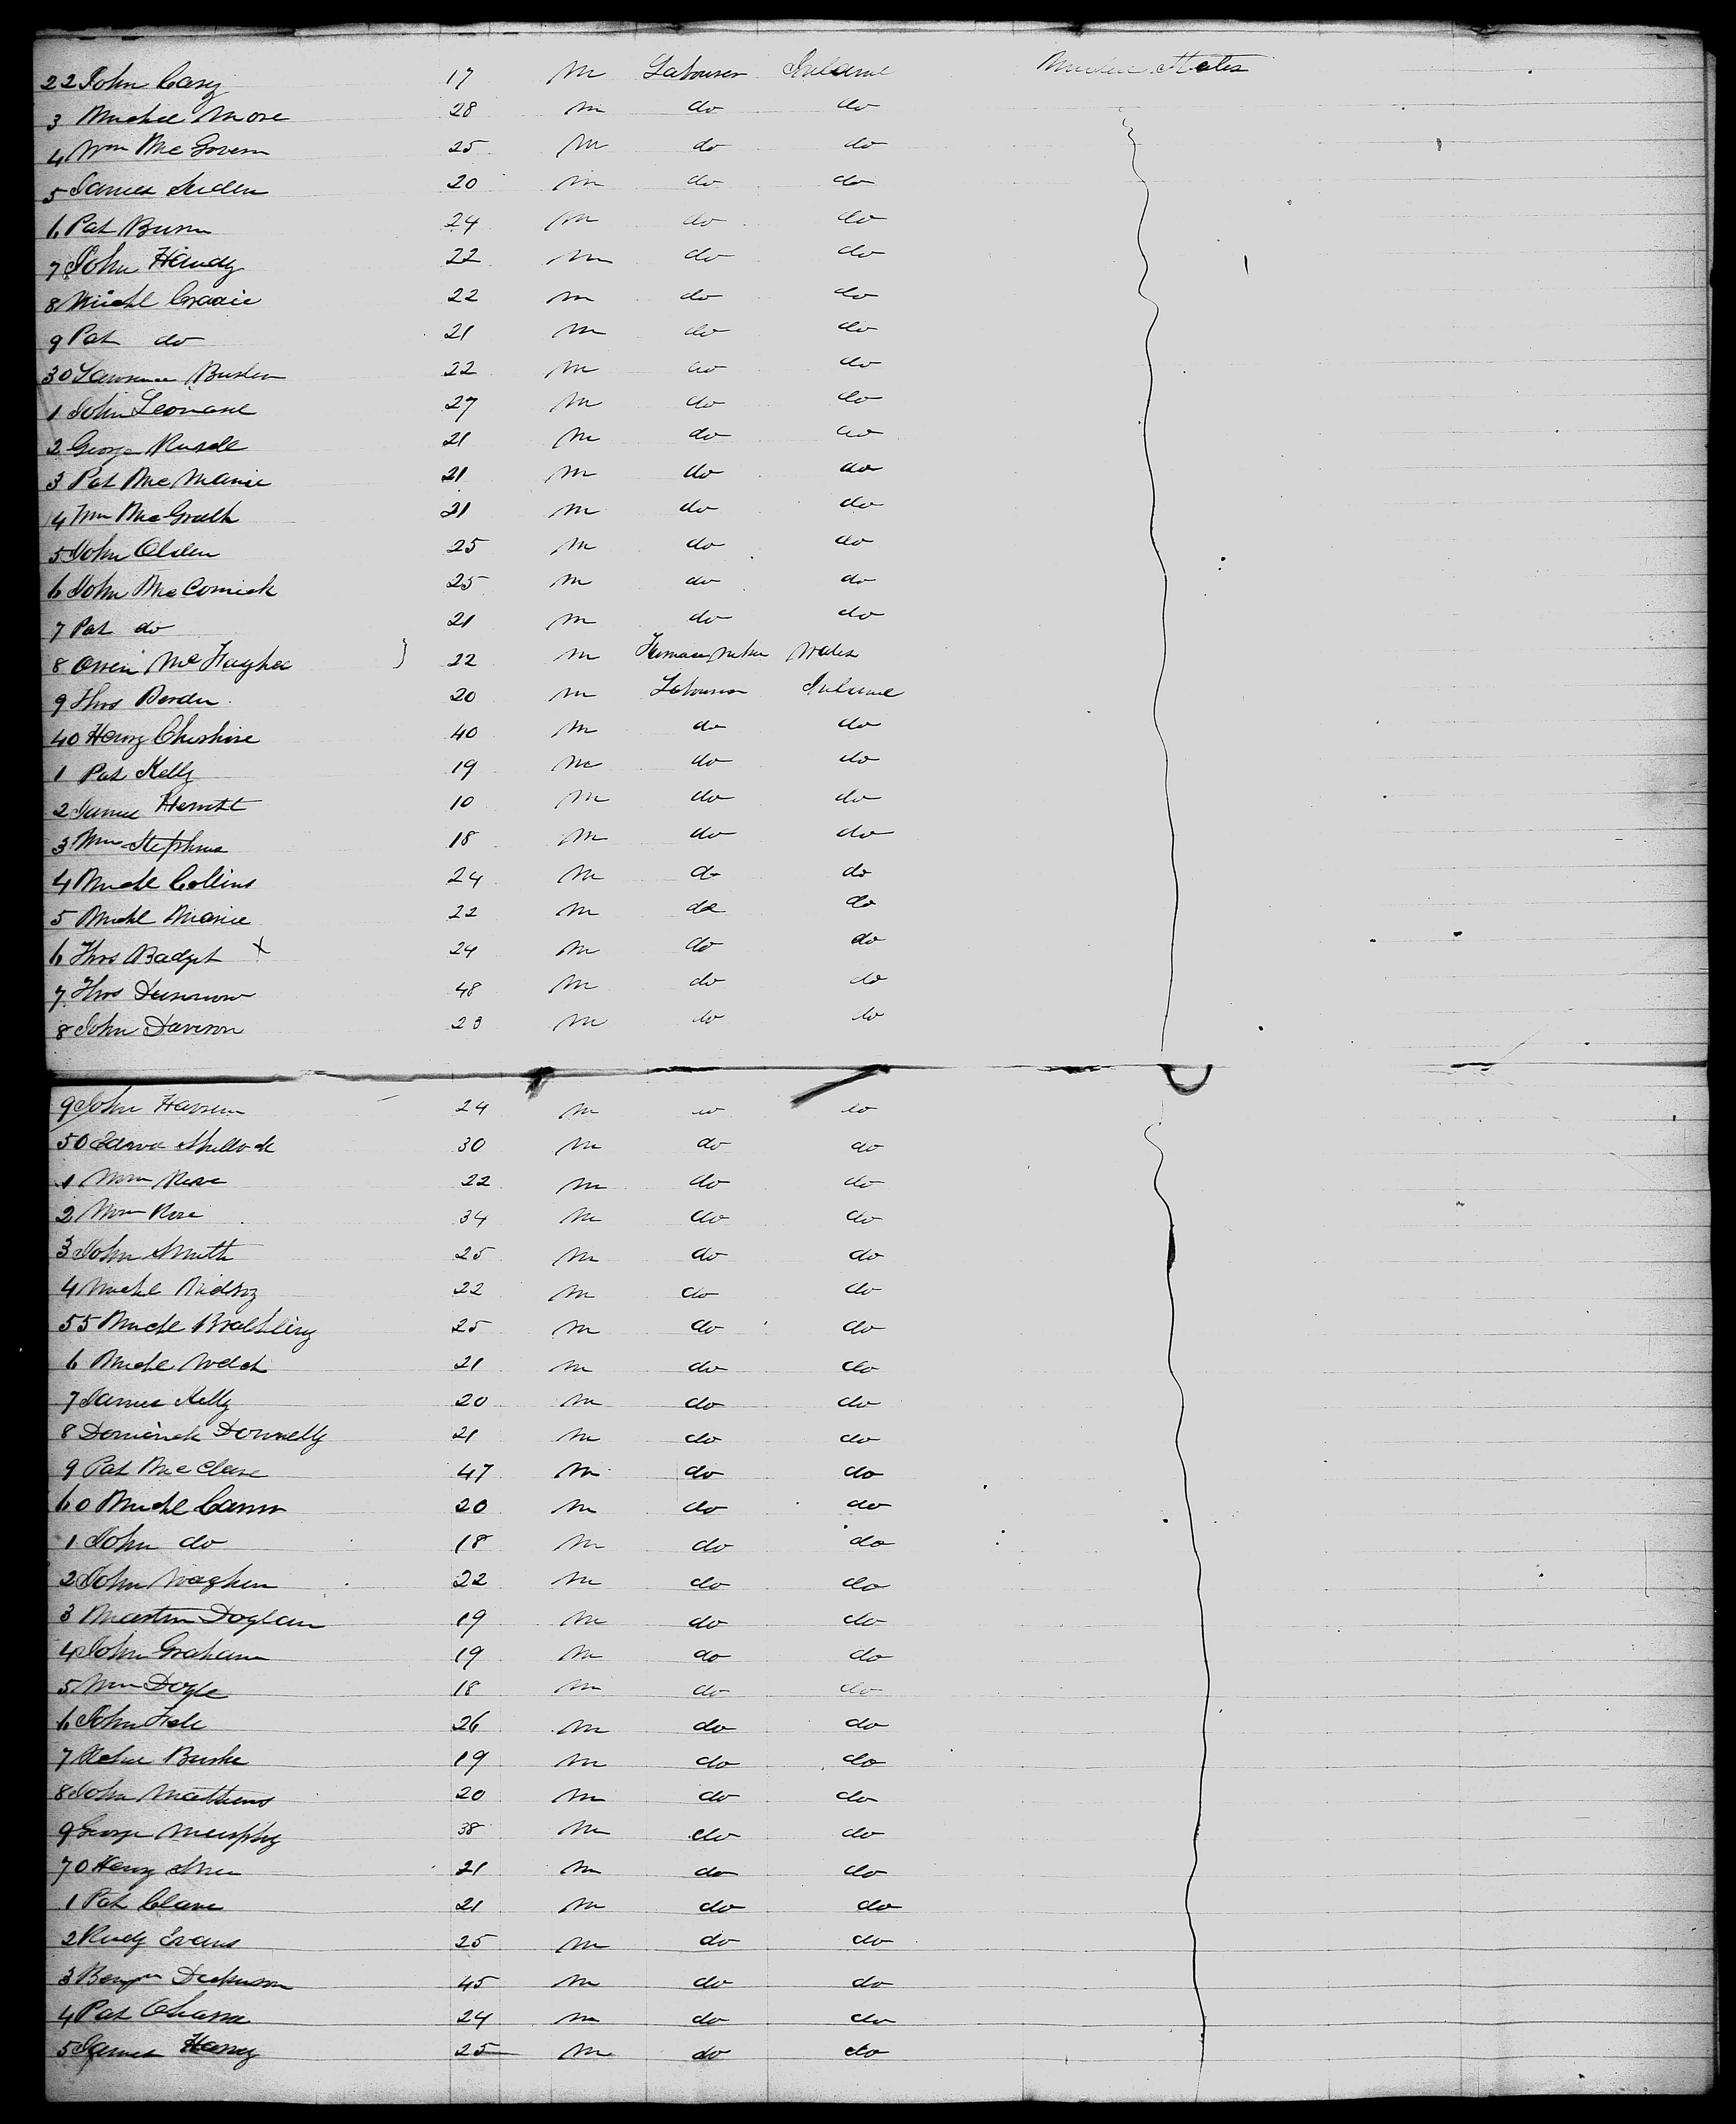 22 John Casey 17 m Labourer Ireland United States
3 Michel More 28 m do do
4 Wm Mc Govern 25 m do do
5 James 20 m do do
6 Pat Burn 24 m do do
7 John Handy 22 m do do
8 Michl 22 m do do
9 Pat do 21 m do do
30 Lawrence 22 m do do
1 John Leonard 27 m do do
2 George Rusell 21 m do do
3 Pat Mc Manie 21 m do do
4 Wm McGrath 21 m do do
5 John Olden 25 m do do
6 John Mc Cormick 25 m do do
7 Pat do 21 m do do
8 Owen Mc Hughes } 22 m Wales
9 Thos 20 m Labourer Ireland
40 Henry Cheshire 40 m do do
1 Pat Kelly 19 m do do
2 James 10 m do do
3 Wm Stephens 18 m do do
4 Michl Collins 24 m do do
5 Michl Manie 22 m do do
6 Thos Badget x 24 m do do
7 Thos 48 m do do
8 John Davison 23 m do do
9 John 24 m do do
50 Edward 30 m do do
1 Wm 22 m do do
2 Wm Rose 34 m do do
3 John Smith 25 m do do
4 Michl 22 m do do
55 Michl 25 m do do
6 Michl Welch 21 m do do
7 James Kelly 20 m do do
8 Dominick Donnelly 21 m do do
9 Pat Mc Clare 47 m do do
60 Michl 20 m do do
1 John do 18 m do do
2 John 22 m do do
3 Martin 19 m do do
4 John Graham 19 m do do
5 Wm Doyle 18 m do do
6 John 26 m do do
7 Burke 19 m do do
8 John Matthews 20 m do do
9 George Murphy 38 m do do
70 Henry 21 m do do
1 Pat Clare 21 m do do
2 Evans 25 m do do
3 Benjn Dickenson 45 m do do
4 Pat 24 m do do
5 James Harvey 25 m do do